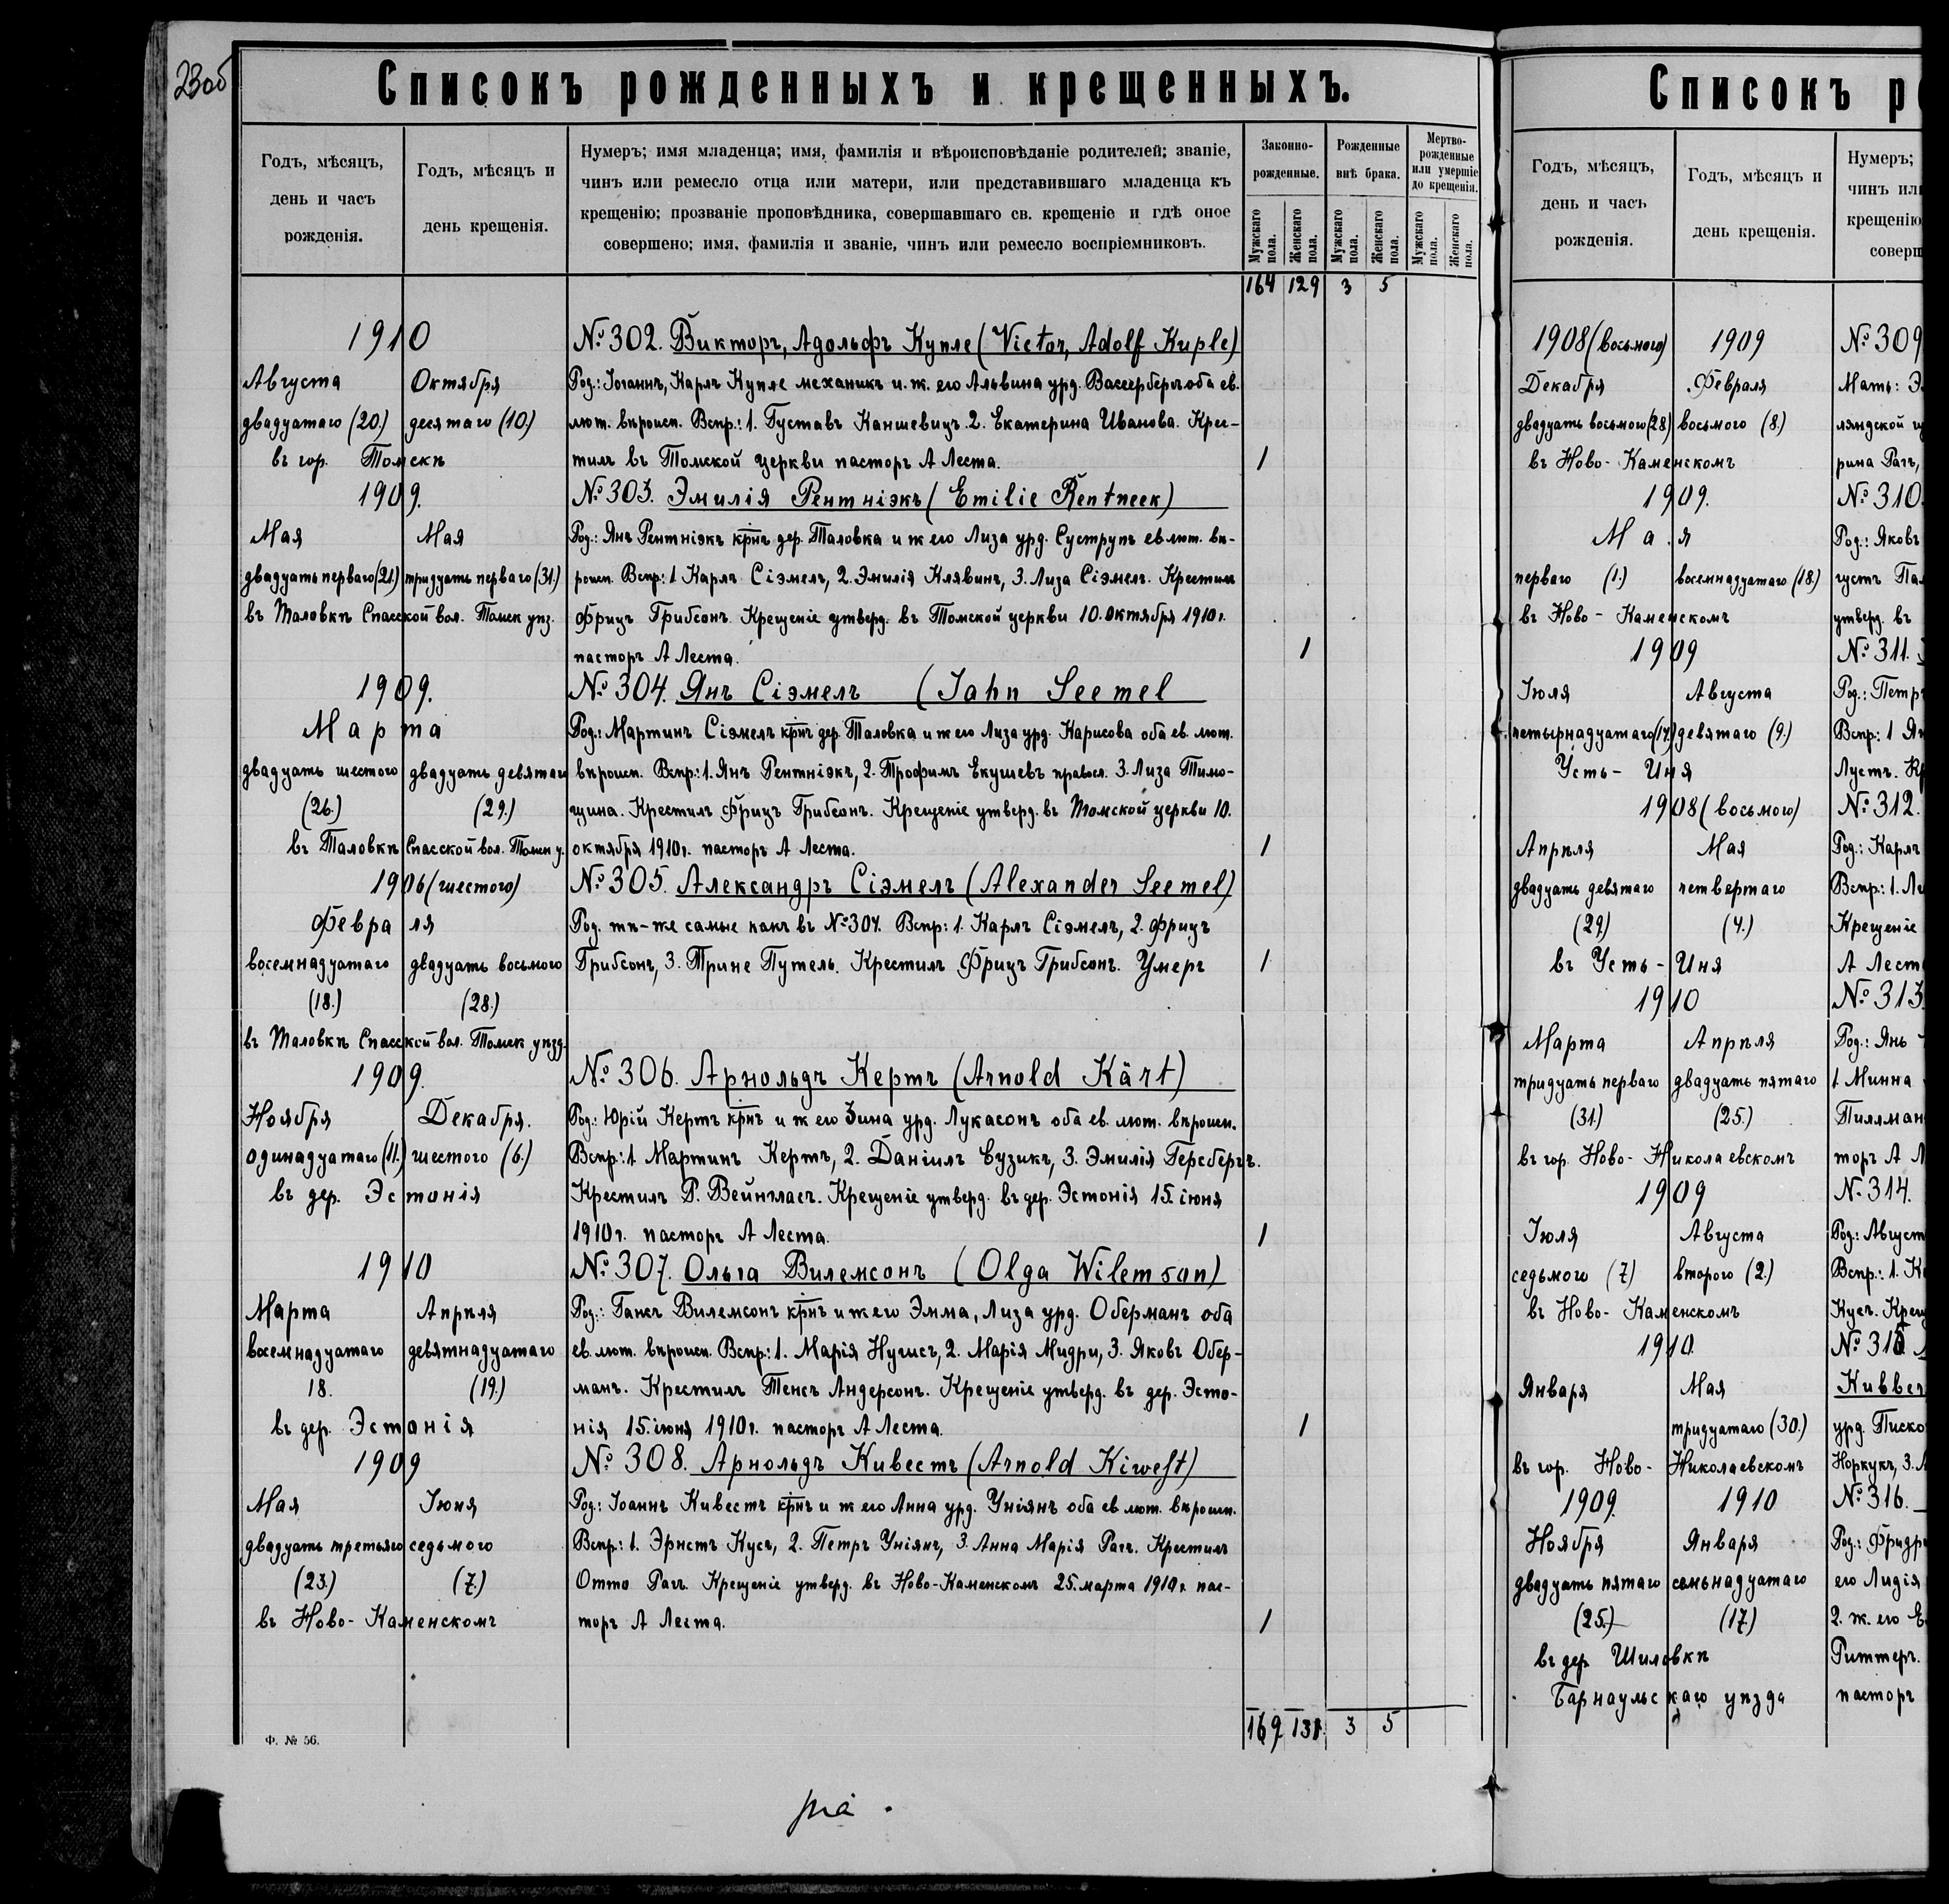 23об
Списокъ рожденныхъ и крещенныхъ.
Годъ, мѣсяцъ,
день и часъ
рожденія.
Годъ, мѣсяцъ и
день крещенія.
Нумеръ; имя младенца; имя, фамилія и вѣроисповѣданіе родителей; званіе,
чинъ или ремесло отца или матери, или представившаго младенца къ
крещенію; прозваніе проповѣдника, совершавшаго св. крещеніе и гдѣ оное
совершено; имя, фамилія и званіе, чинъ или ремесло воспріемниковъ.
Законно-
рожденные.
Рожденные
внѣ брака.
Мертво-
рожденные
или умершіе
до крещенія.
Мужскаго пола.
Женскаго пола.
Мужскаго пола.
Женскаго пола.
Мужскаго пола.
Женскаго пола.
164 129 3 5
1910
№ 302. Викторъ, Адольфъ Купле (Victor, Adolf Kuple)
Августа Октября Род.: Іоганнъ, Карлъ Купле механикъ и. ж. его Альвина урд. Вассербергъ оба ев.
двадцатаго (20.) десятаго (10.) лют. вѣроисп. Вспр.: 1. Густавъ Каншевицъ. 2. Екатерина Иванова. Крес-
въ гор. Томскѣ тилъ въ Томской церкви пасторъ А Леста. 1
1909. № 303. Эмилія Рентніэкъ (Emilie Rentneek)
Мая Мая Род.: Янъ Рентніэкъ крнъ дер. Таловка и ж его Лиза урд. Суструпъ ев лют. вѣ-
двадцать перваго (21.) тридцать перваго (31.) роисп. Вспр: 1 Карлъ Сіэмелъ, 2. Эмилія Клявинъ, 3. Лиза Сіэмелъ. Крестилъ
въ Таловкѣ Спасской вол. Томск уѣз. Фрицъ Грибсонъ. Крещеніе утверд. въ Томской церкви 10. октября 1910 г.
пасторъ А Леста. 1
1909. № 304. Янъ Сіэмелъ (Jahn Seemel
Марта Род.: Мартинъ Сіэмелъ крнъ дер. Таловка и ж его Лиза урд. Карисова оба ев. лют.
двадцать шестого двадцать девятаго вѣроисп. Вспр: 1. Янъ Рентніэкъ, 2. Трофимъ Екушевъ правосл. 3. Лиза Тимо-
(26.) (29.) щина. Крестилъ Фрицъ Грибсонъ. Крещеніе утверд. въ Томской церкви 10.
въ Таловкѣ Спасской вол. Томск у. октября 1910 г. пасторъ А Леста. 1
1906 (шестого) № 305. Александръ Сіэмелъ (Alexander Seemel)
Февраля Род. тѣ-же самые какъ въ № 304. Вспр: 1. Карлъ Сіэмелъ, 2. Фрицъ
восемнадцатаго двадцать восьмого Грибсонъ, 3. Трине Путель. Крестилъ Фрицъ Грибсонъ. Умеръ 1
(18.) (28.)
въ Таловкѣ Спасской вол. Томск уѣзд.
1909. № 306. Арнольдъ Кертъ (Arnold Kärt)
Ноября Декабря. Род.: Юрій Кертъ крнъ и ж его Зина урд. Лукасонъ оба ев. лют. вѣроисп.
одинадцатаго (11.) шестого (6.) Вспр.: 1. Мартинъ Кертъ, 2. Даніилъ Сузикъ, 3. Эмилія Герсбергъ.
въ дер. Эстонія Крестилъ Р. Вейнгласъ. Крещеніе утверд. въ дер. Эстонія 15. іюня
1910 г. пасторъ А Леста. 1
1910 № 307. Ольга Вилемсонъ (Olga Wilemson)
Марта Апрѣля Род.: Гансъ Вилемсонъ крнъ и ж его Эмма, Лиза урд. Оберманъ оба
восемнадцатаго девятнадцатаго ев. лют. вѣроисп. Вспр: 1. Марія Нугисъ, 2. Марія Мидри, 3. Яковъ Обер-
18. (19.) манъ. Крестилъ Тенсъ Андерсонъ. Крещеніе утверд. въ дер. Эсто-
въ дер. Эстонія нія 15. іюня 1910 г. пасторъ А Леста. 1
1909 № 308. Арнольдъ Кивестъ (Arnold Kiwest)
Мая Іюня Род: Іоаннъ Кивестъ крнъ и ж его Анна урд. Уніянъ оба ев лют. вѣроисп.
двадцать третьяго седьмого Вспр: 1. Эрнстъ Кусъ, 2. Петръ Уніянъ, 3. Анна Марія Рагъ. Крестилъ
(23.) (7.) Отто Рагъ. Крещеніе утверд. въ Ново-Каменскомъ 25. марта 1910 г. пас-
въ Ново-Каменскомъ торъ А Леста. 1
169 131 3 5
Ф. № 56.
Списокъ р
Годъ, мѣсяцъ,
день и часъ
рожденія.
Годъ, мѣсяцъ и
день крещенія.
Нумеръ;
чинъ ил
крещенію
соверш
1908 (восьмого) 1909 № 309
Декабря Февраля Мать: Э
двадцать восьмого (28) восьмого (8.) ляндской
въ Ново-Каменскомъ рина Рагъ,
1909. № 310.
Мая Род.: Яковъ
перваго (1.) восемнадцатаго (18.) густъ Па
въ Ново-Каменскомъ утверд. въ
1909 № 311.
Іюля Августа Род.: Петръ
четырнадцатаго (14.) девятаго (9.) Вспр: 1 Ян
Усть-Иня Лустъ. Кр
1908 (восьмого) № 312.
Апрѣля Мая Род.: Карлъ
двадцать девятаго четвертаго Вспр: 1. Ли
(29.) (4.) Крещеніе
въ Усть-Иня А Лест
1910 № 313
Марта Апрѣля Род.: Янь
тридцать перваго двадцать пятаго 1 Минна
(31.) (25.) Пиллман
въ гор. Ново-Николаевскомъ торъ А Л
1909 № 314.
Іюля Августа Род.: Август
седьмого (7) второго (2.) Вспр.: 1. К
въ Ново-Каменскомъ Кусъ. Крещ
1910. № 315
Января Мая Кивве
тридцатаго (30.) урд. Писко
въ гор. Ново-Николаевскомъ Норкукъ, 3.
1909. 1910 № 316.
Ноября Января Род.: Фридр
двадцать пятаго семьнадцатаго его Лидія
(25.) (17.) 2. ж. его Е
въ дер. Шиловкѣ Риттеръ.
Барнаульскаго уѣзда пасторъ